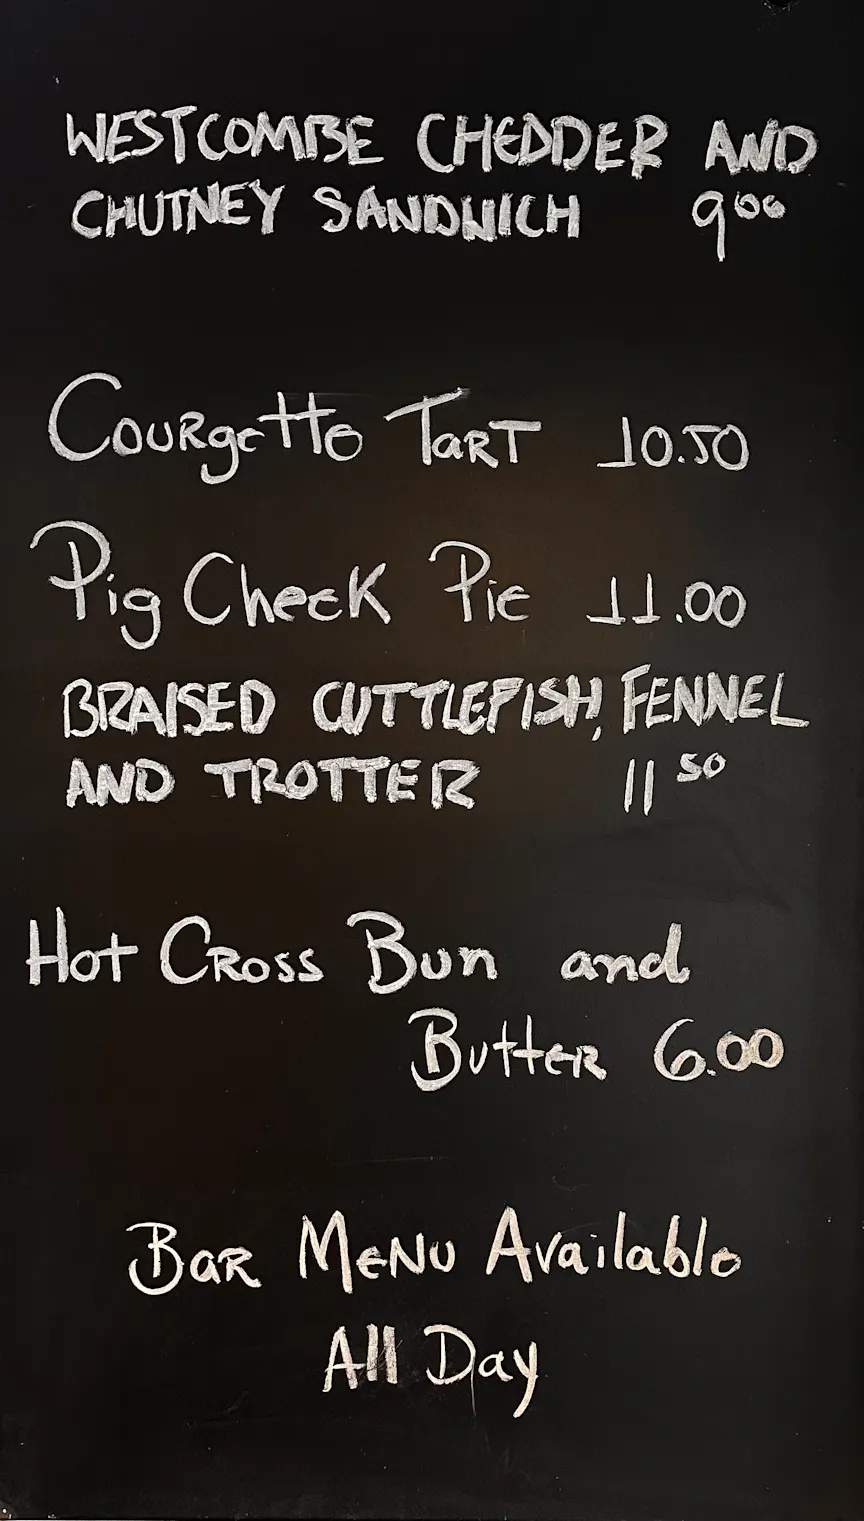 WESTCOMBE CHEDDER AND
CHUTNEY SANDWICH 9.00
Courgette Tart 10.50
Pig Cheek Pie 11.00
BRAISED CUTTLEFISH, FENNEL
AND TROTTER 11 50
Hot Cross Bun and
Butter 6.00
Bar Menu Available
All Day